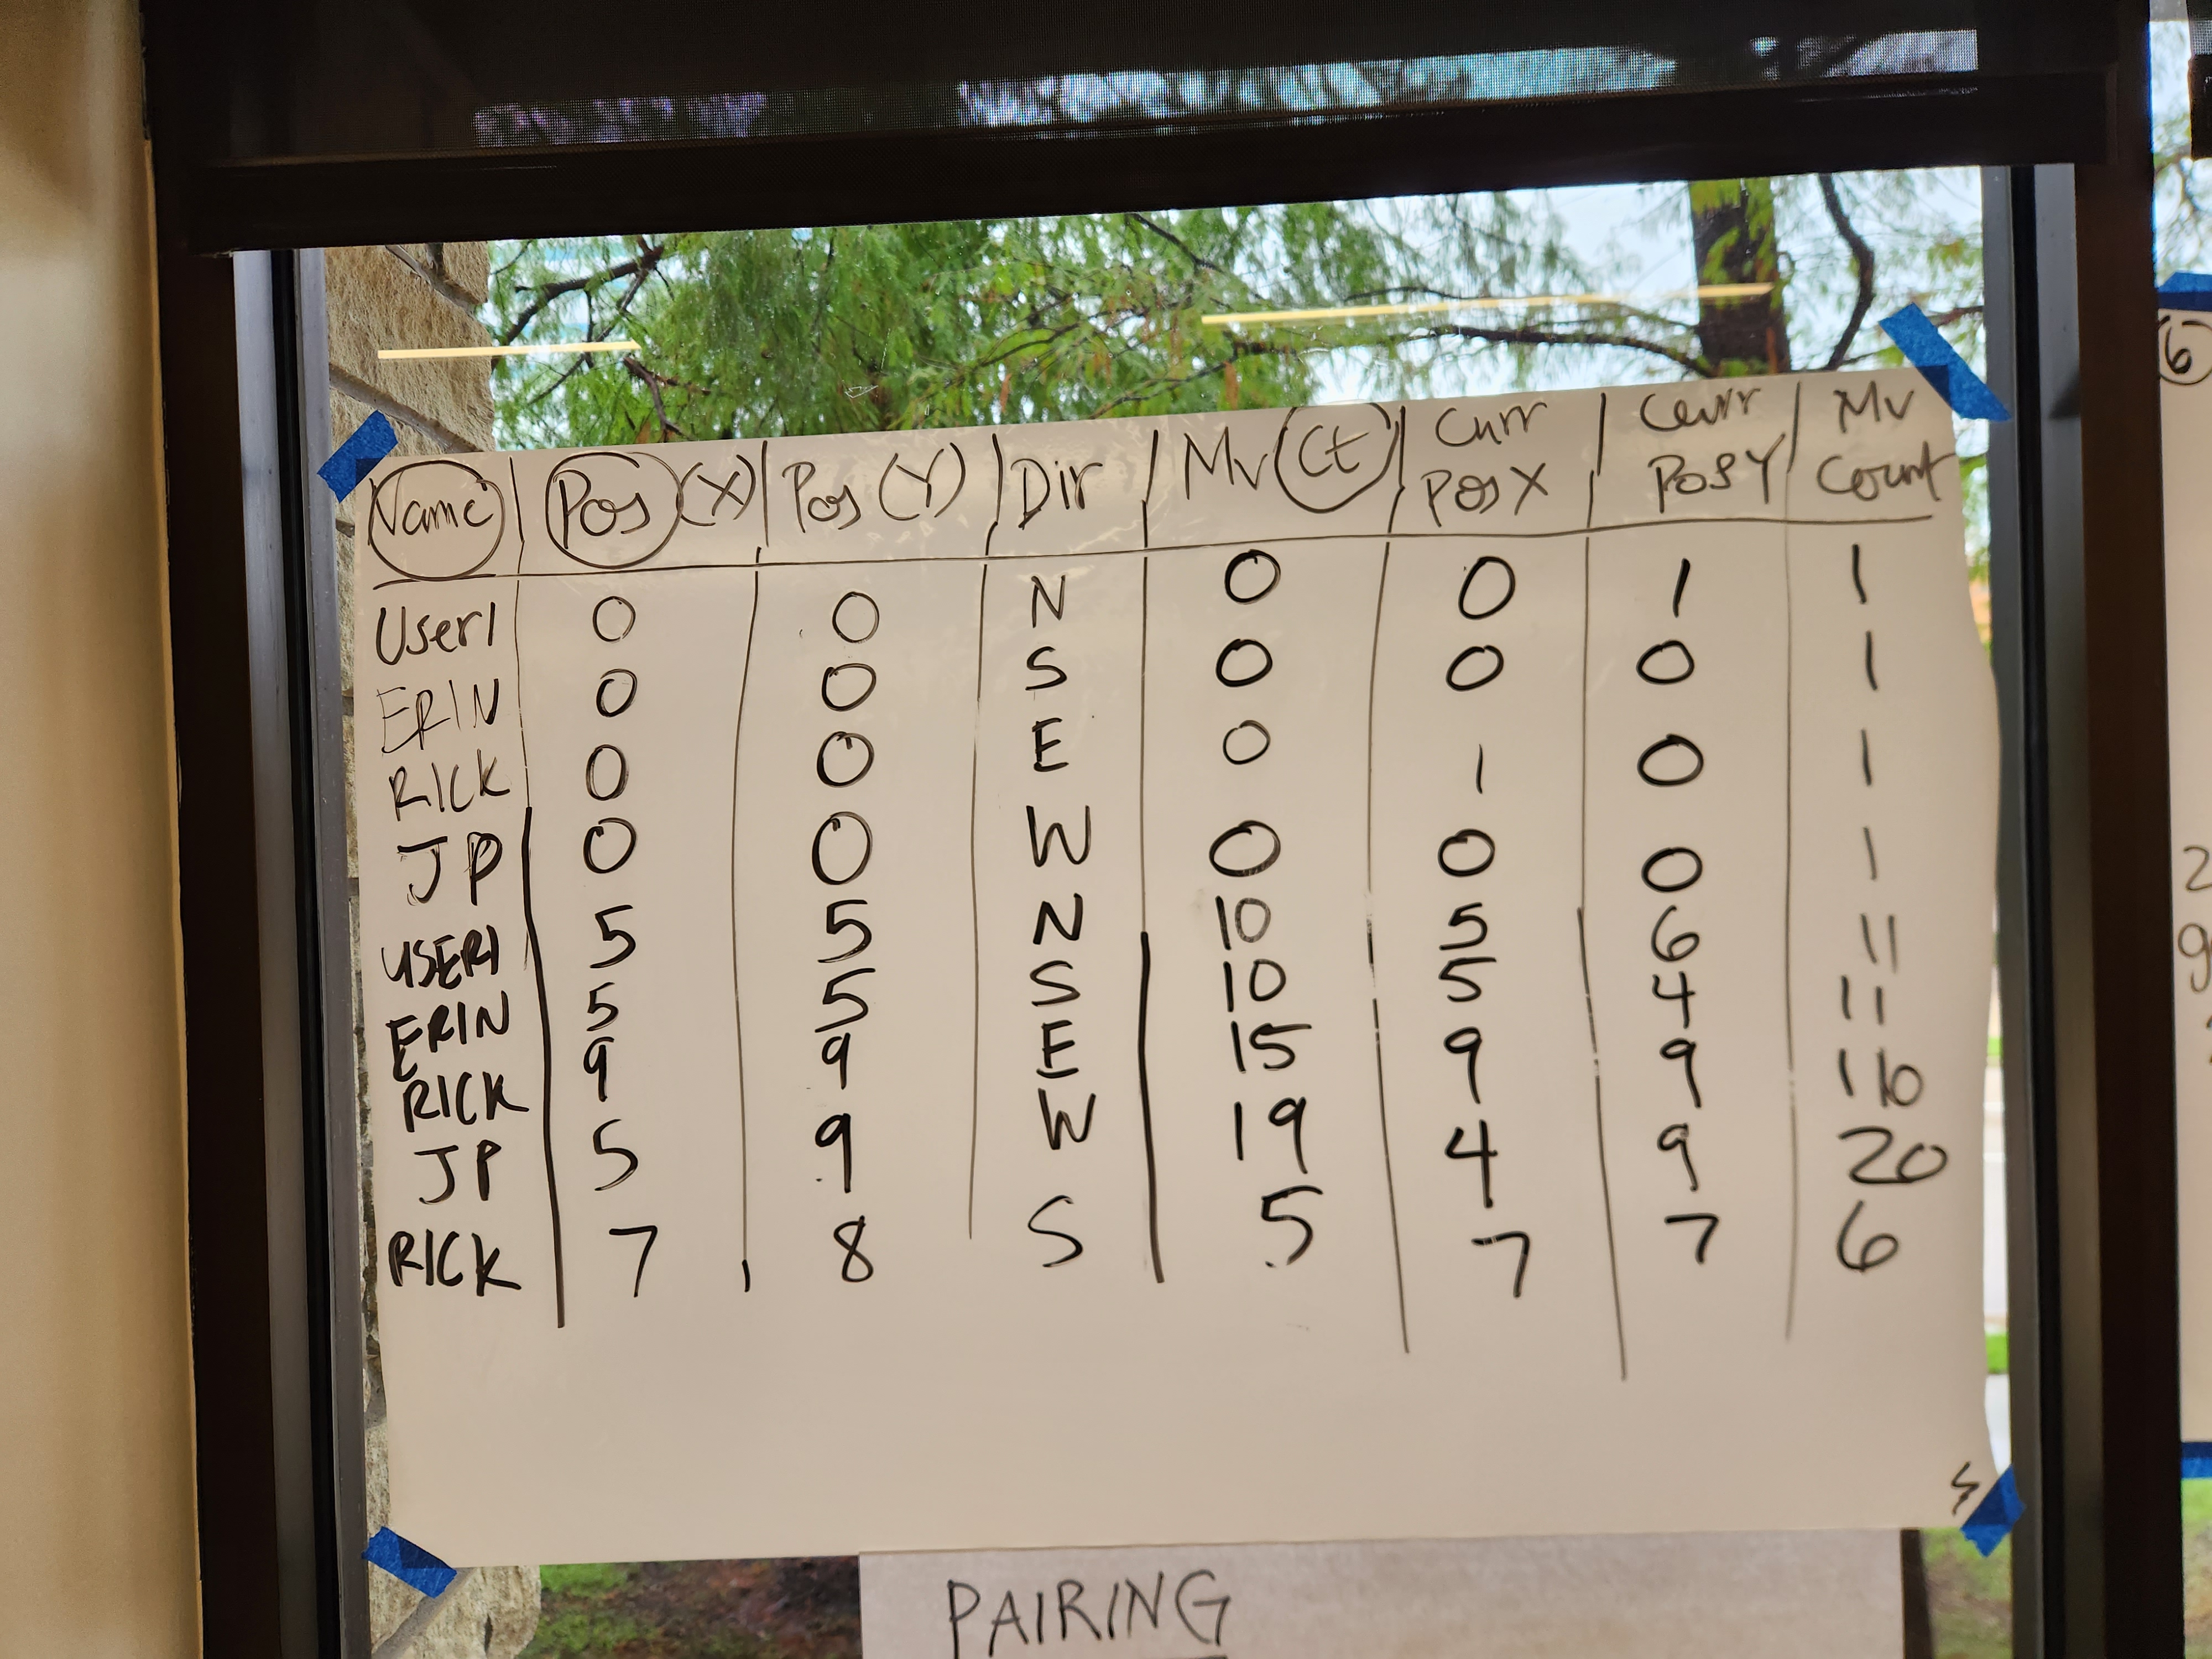 Name Pos (X) Pos (Y) Dir Mv Ct Curr Pos X Curr Pos Y Mv Count
User1 0 0 N 0 0 1 1
ERIN 0 0 S 0 0 0 1
RICK 0 0 E 0 1 0 1
JP 0 0 W 0 0 0 1
USER1 5 5 N 10 5 6 11
ERIN 5 5 S 10 5 4 11
RICK 9 9 E 15 9 9
JP 5 9 W 19 4 9 20
RICK 7 8 S 5 7 7 6
PAIRING
6
2
9